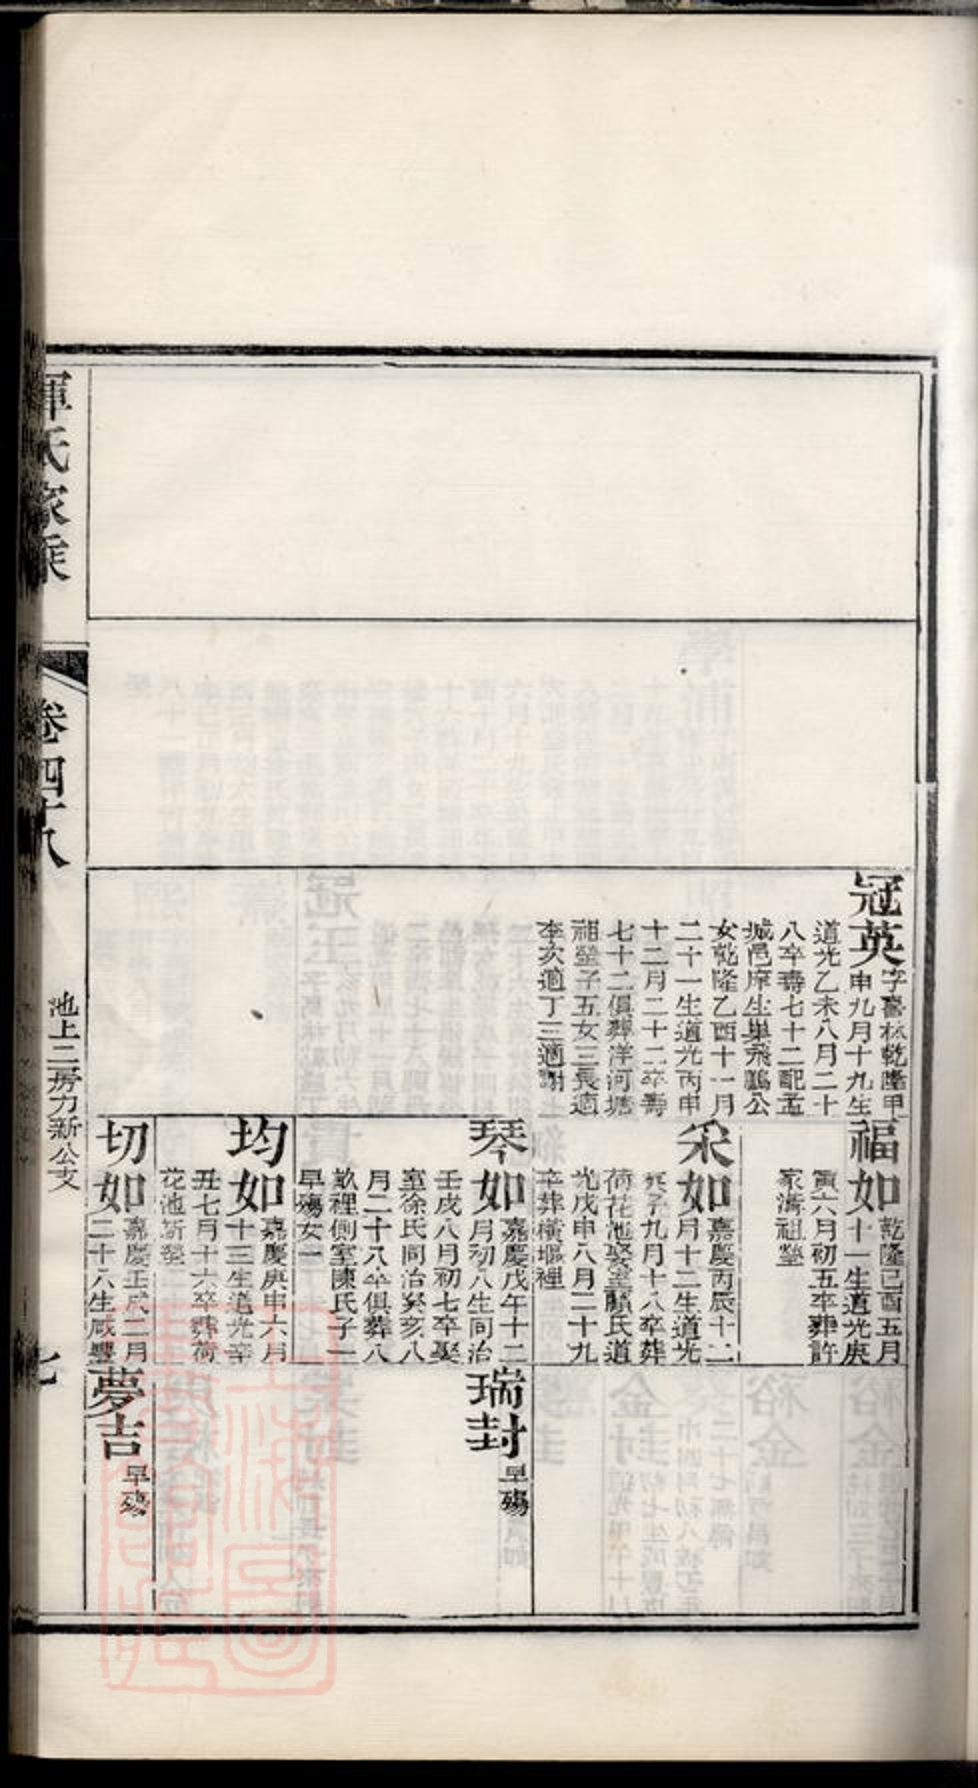 惲氏家乘
卷四十八
池上二房力新公支
七
冠英
字 林乾隆甲
申九月十九生
道光乙未八月二十
八卒壽七十二配孟
城邑庠生巢飛鵬公
女乾隆乙酉十一月
二十一生道光丙申
十二月二十二卒壽
七十二俱葬洋河塘
祖塋子五女三長適
李次適丁三適謝
福如
乾隆己酉五月
十一生道光庚
寅六月初五卒葬許
家濟祖塋
采如
嘉慶丙辰十二
月十二生道光
庚子九月十八卒葬
荷花池娶 顧氏道
光戊申八月二十九
卒葬橫堰裡
琴如
嘉慶戊午十二
月初八生同治
壬戌八月初七卒娶
室徐氏同治癸亥八
月二十八卒俱葬八
畝裡側室陳氏子一
早殤女一
均如
嘉慶庚申六月
十三生道光辛
丑七月十六卒葬荷
花池新塋
切如
嘉慶壬戌二月
二十六生咸豐
瑞封
早殤
夢吉
早殤